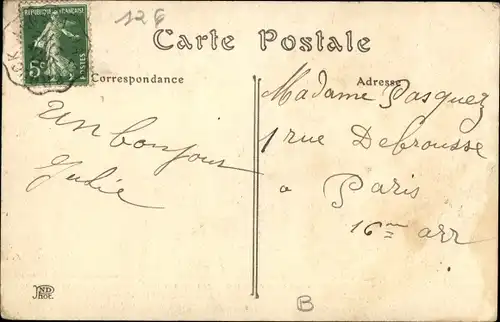 126
RÉPUBLIQUE FRANÇAISE
5c
POSTES
Carte Postale
Correspondance
Adresse
Un bonjour
Julie
Madame Pasquez
1 rue Debrousse
a Paris
16me arr
ND
Phot.
B